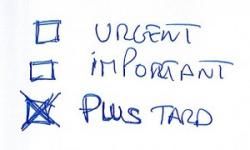 URGENT
iMPORTANT
PLUS TARD